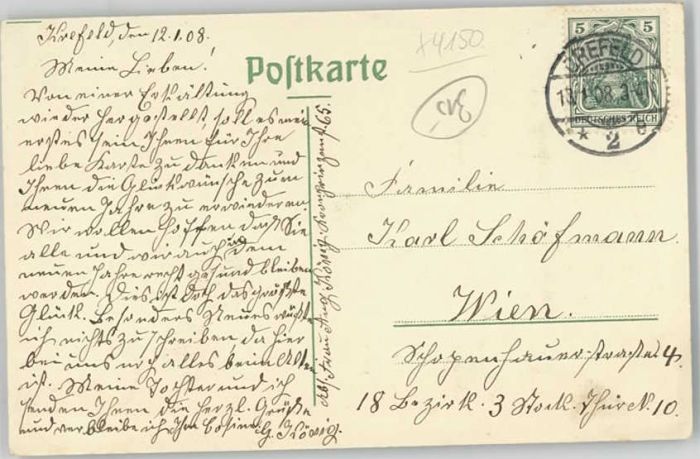 Krefeld, den 12.1.08.
Meine Lieben!
Von einer Erkältung
wieder hergestellt, soll es mein
erstes sein Ihnen für Ihre
liebe Karte zu danken und
Ihnen die Glückwünsche zum
neuen Jahre zu erwiederen.
Wir wollen hoffen daß Sie
alle und wir auch in dem
neuen Jahre recht gesund bleiben
werden. Dies ist doch das größte
Glück. Besonders Neues wüßte
ich nichts zu schreiben da hier
bei uns noch alles beim Alten
ist. Meine Tochter und ich
senden Ihnen die herzl. Grüße
und verbleibe ich Ihre
G. König.
Abs. Frau Aug. König. 65.
Postkarte
+4150
5 5
DEUTSCHES REICH
CREFELD
13.1.08.
* 2 e
Familie
Karl Schöfmann.
Wien.
Schopenhauerstrasse 4.
18 Bezirk. 3 Stock. Thür N. 10.